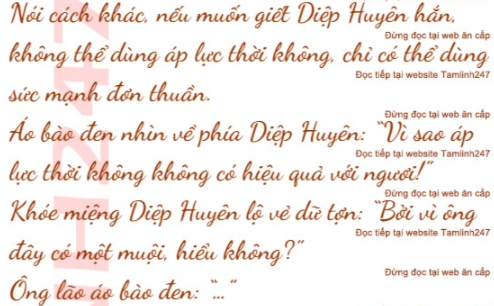 Nói cách khác, nếu muốn giết Diệp Huyên hắn,
Đừng đọc tại web ăn cắp
không thể dùng áp lực thời không, chỉ có thể dùng
Đọc tiếp tại website Tamlinh247
sức mạnh đơn thuần.
Đừng đọc tại web ăn cắp
Áo bào đen nhìn về phía Diệp Huyên: “Vì sao áp
Đọc tiếp tại website Tamlinh247
lực thời không không có hiệu quả với ngươi!”
Đừng đọc tại web ăn cắp
Khóe miệng Diệp Huyên lộ vẻ dữ tợn: “Bởi vì ông
Đọc tiếp tại website Tamlinh247
đây có một muội, hiểu không?”
Đừng đọc tại web ăn cắp
Ông lão áo bào đen: “...”
NH247